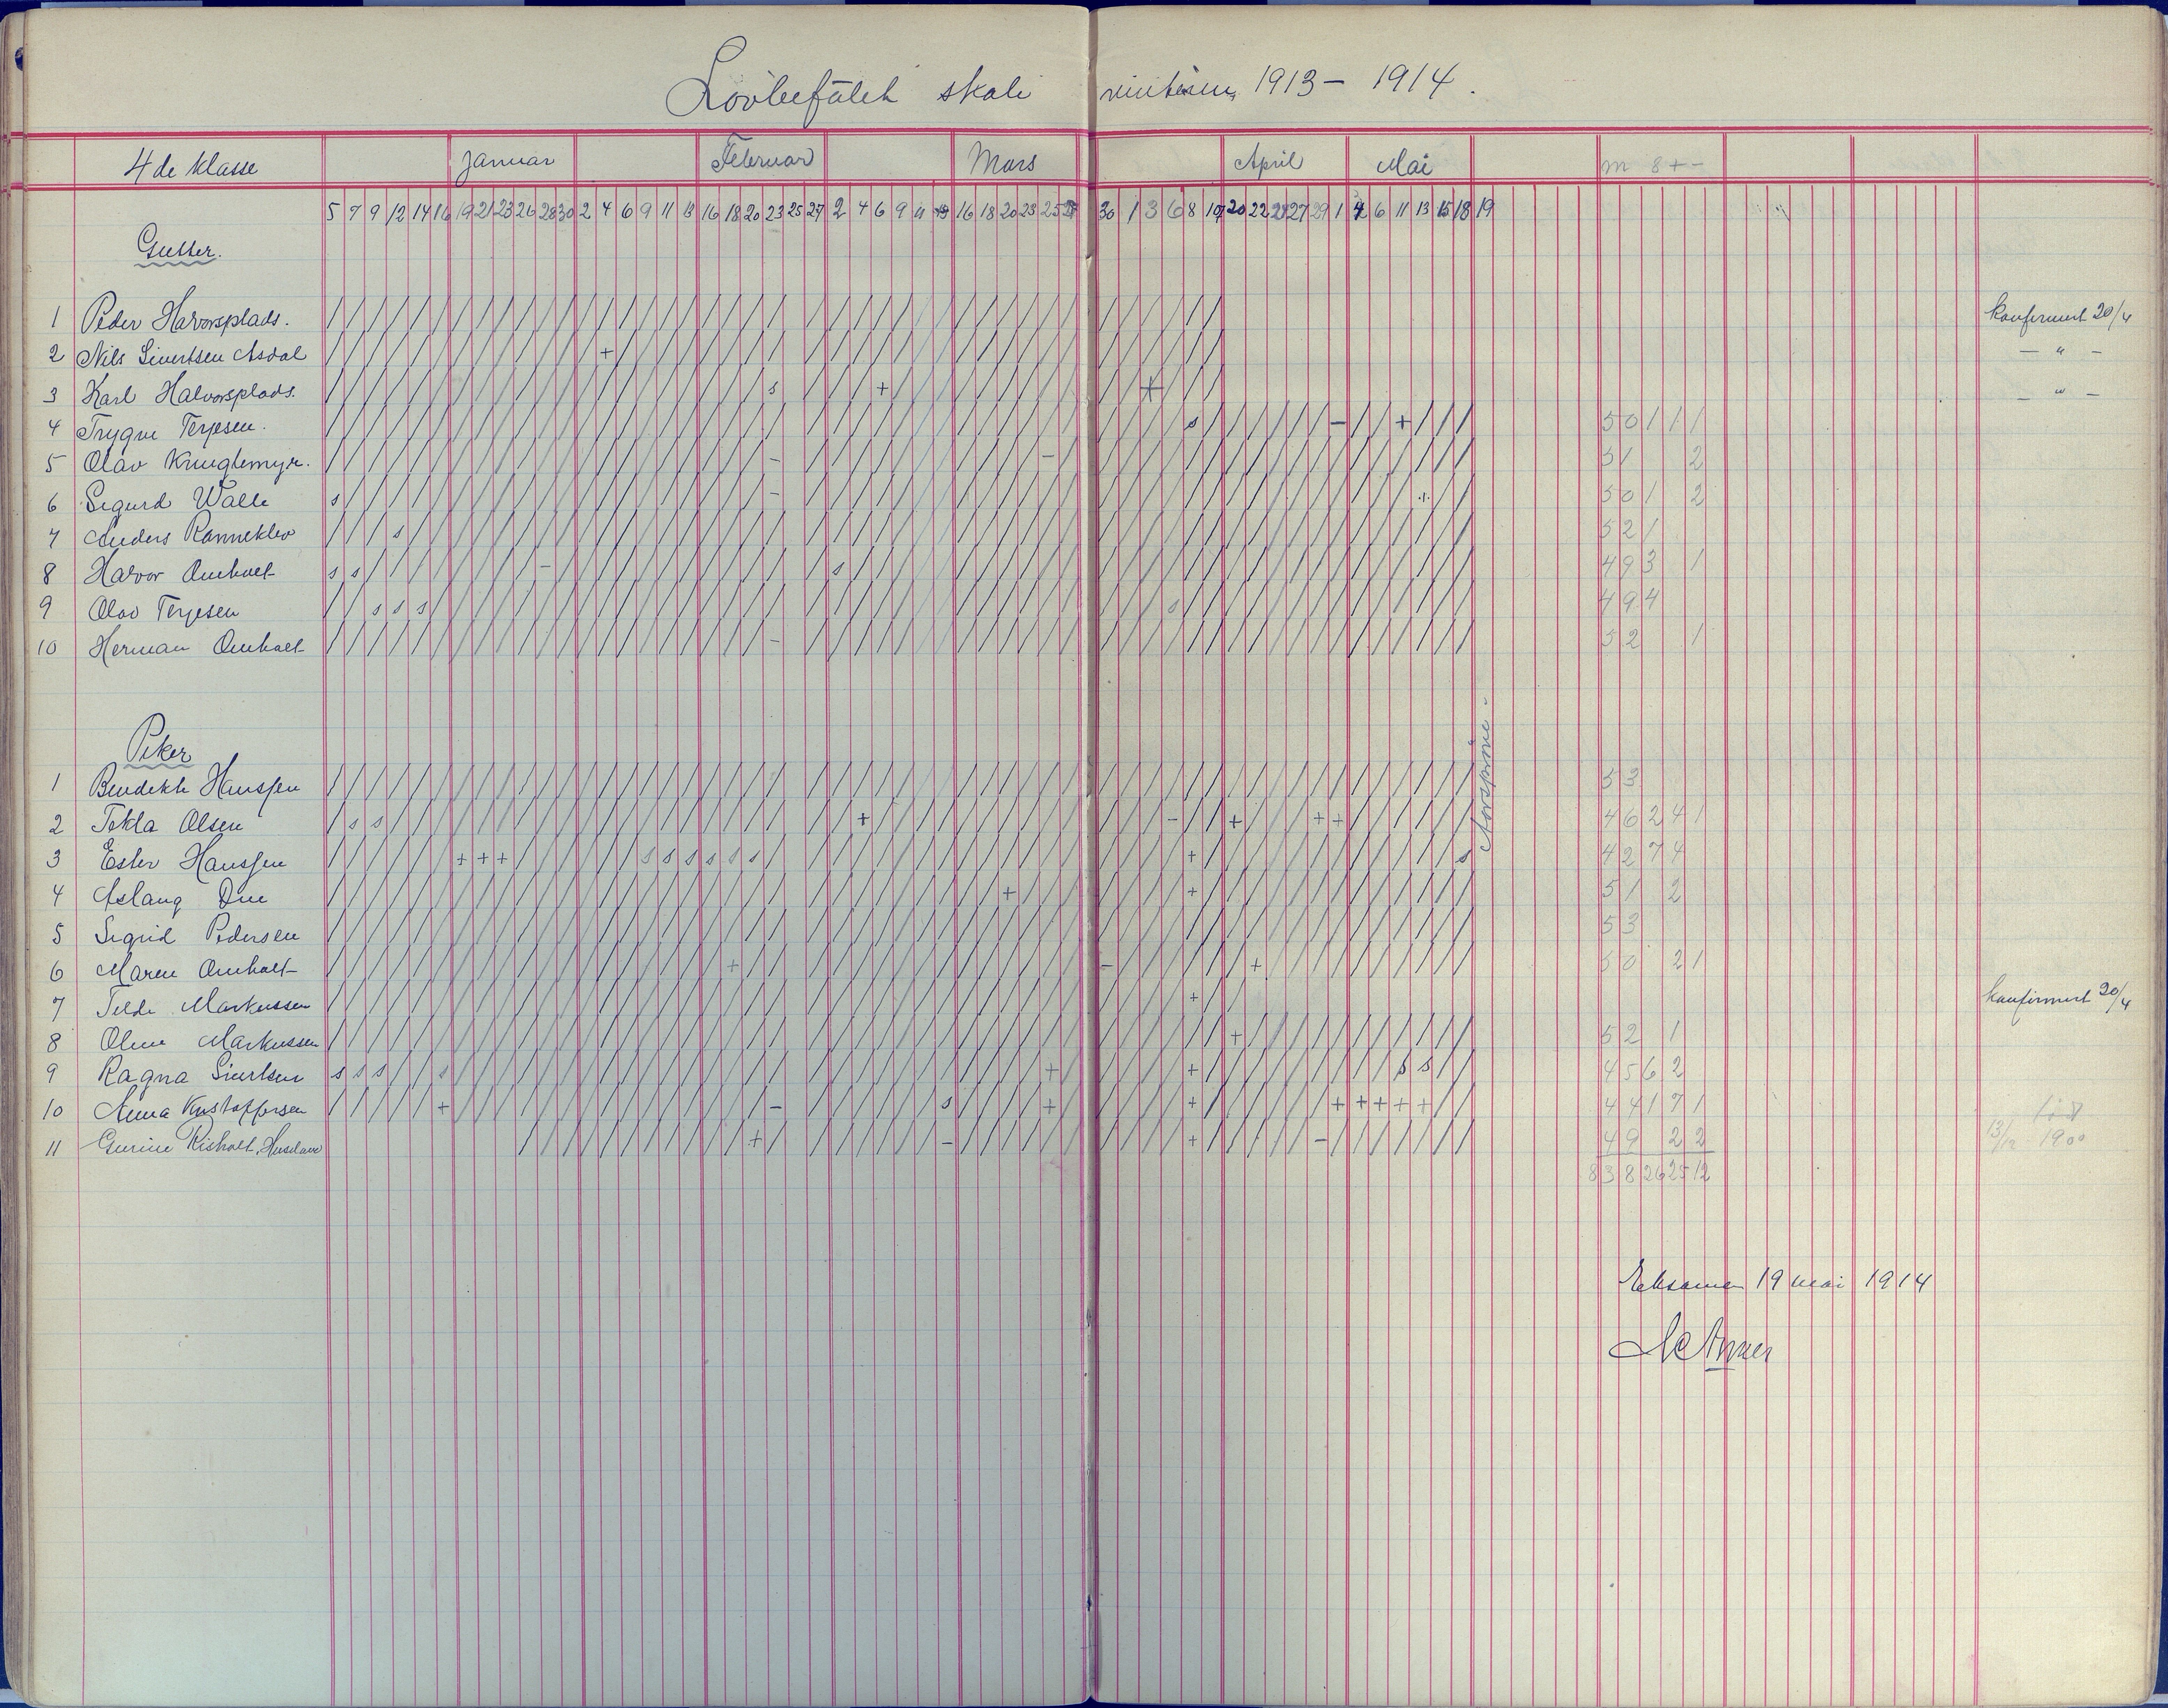 Lovbefalt skole vinteren 1913 – 1914.
4de klasse Januar Februar Mars April Mai m s + –
5 7 9 12 14 16 19 21 23 26 28 30 2 4 6 9 11 13 16 18 20 23 25 27 2 4 6 9 11 13 16 18 20 23 25 27 30 1 3 6 8 17 20 22 24 27 29 1 4 6 11 13 15 18 19
Gutter.
1 Peder Halvorsplads. / / / / / / / / / / / / / / / / / / / / / / / / / / / / / / / / / / / / / / / / / / konfirmert 20/4
2 Nils Sivertsen Asdal + – " –
3 Karl Halvorsplads. s + + – " –
4 Trygve Terjesen. s – + 50 1 1 1
5 Olav Knuglemyr. – – 51 2
6 Sigurd Walle s – 50 1 2
7 Anders Ranneklev s 52 1
8 Halvor Omholt s s – s 49 3 1
9 Olav Terjesen s s s s 49 4
10 Herman Omholt – 52 1
Piker
1 Bendikte Hanssen 53
2 Tekla Olsen s s + – + + + 46 2 4 1
3 Ester Hanssen + + + s s s s s s + s 42 7 4
4 Aslaug Due + + 51 2
5 Sigrid Pedersen 53
6 Maren Omholt + – + 50 2 1
7 Telde Markussen + konfirmert 20/4
8 Oline Markussen + 52 1
9 Ragna Sivertsen s s s s + + s s 45 6 2
10 Anna Kristoffersen + – s + + + + + + + 44 1 7 1
11 Gurine Risholt, + – + – 49 2 2 13/12 1900
838 26 25 12
Aarsprøve.
Eksamen 19 mai 1914